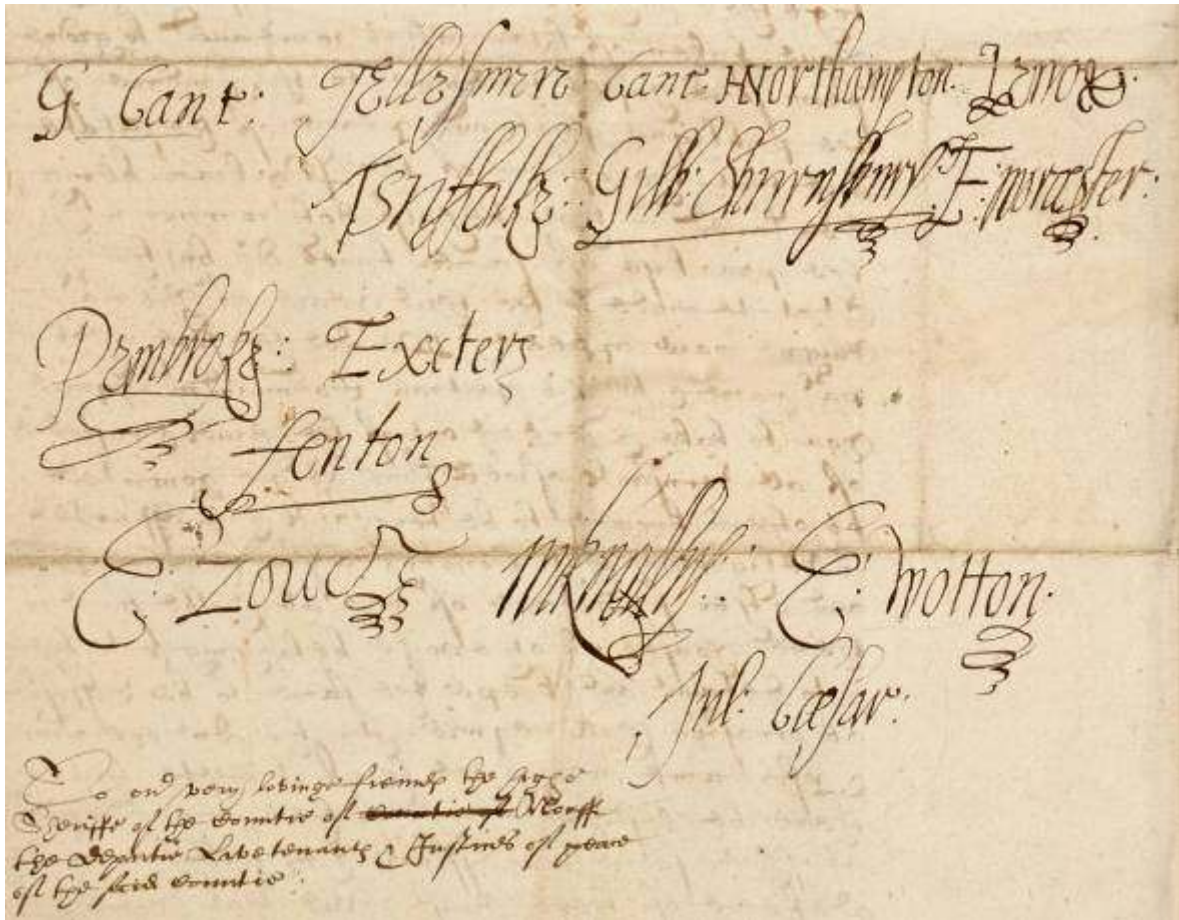 G Cant: TEllesmere Canc: HNorthampton: Lenox.
TSuffolke: Gilb: Shrewsbury. E: worcester.
Pembroke: Exeters
fenton
E: Zouche WKnollys: E: Wotton.
Jul: Cæsar:
To our very lovinge friends the highe
Sheriffe of the Countie of Countie of Norff
the Deputie Livetenants & Justices of peace
of the said Countie.